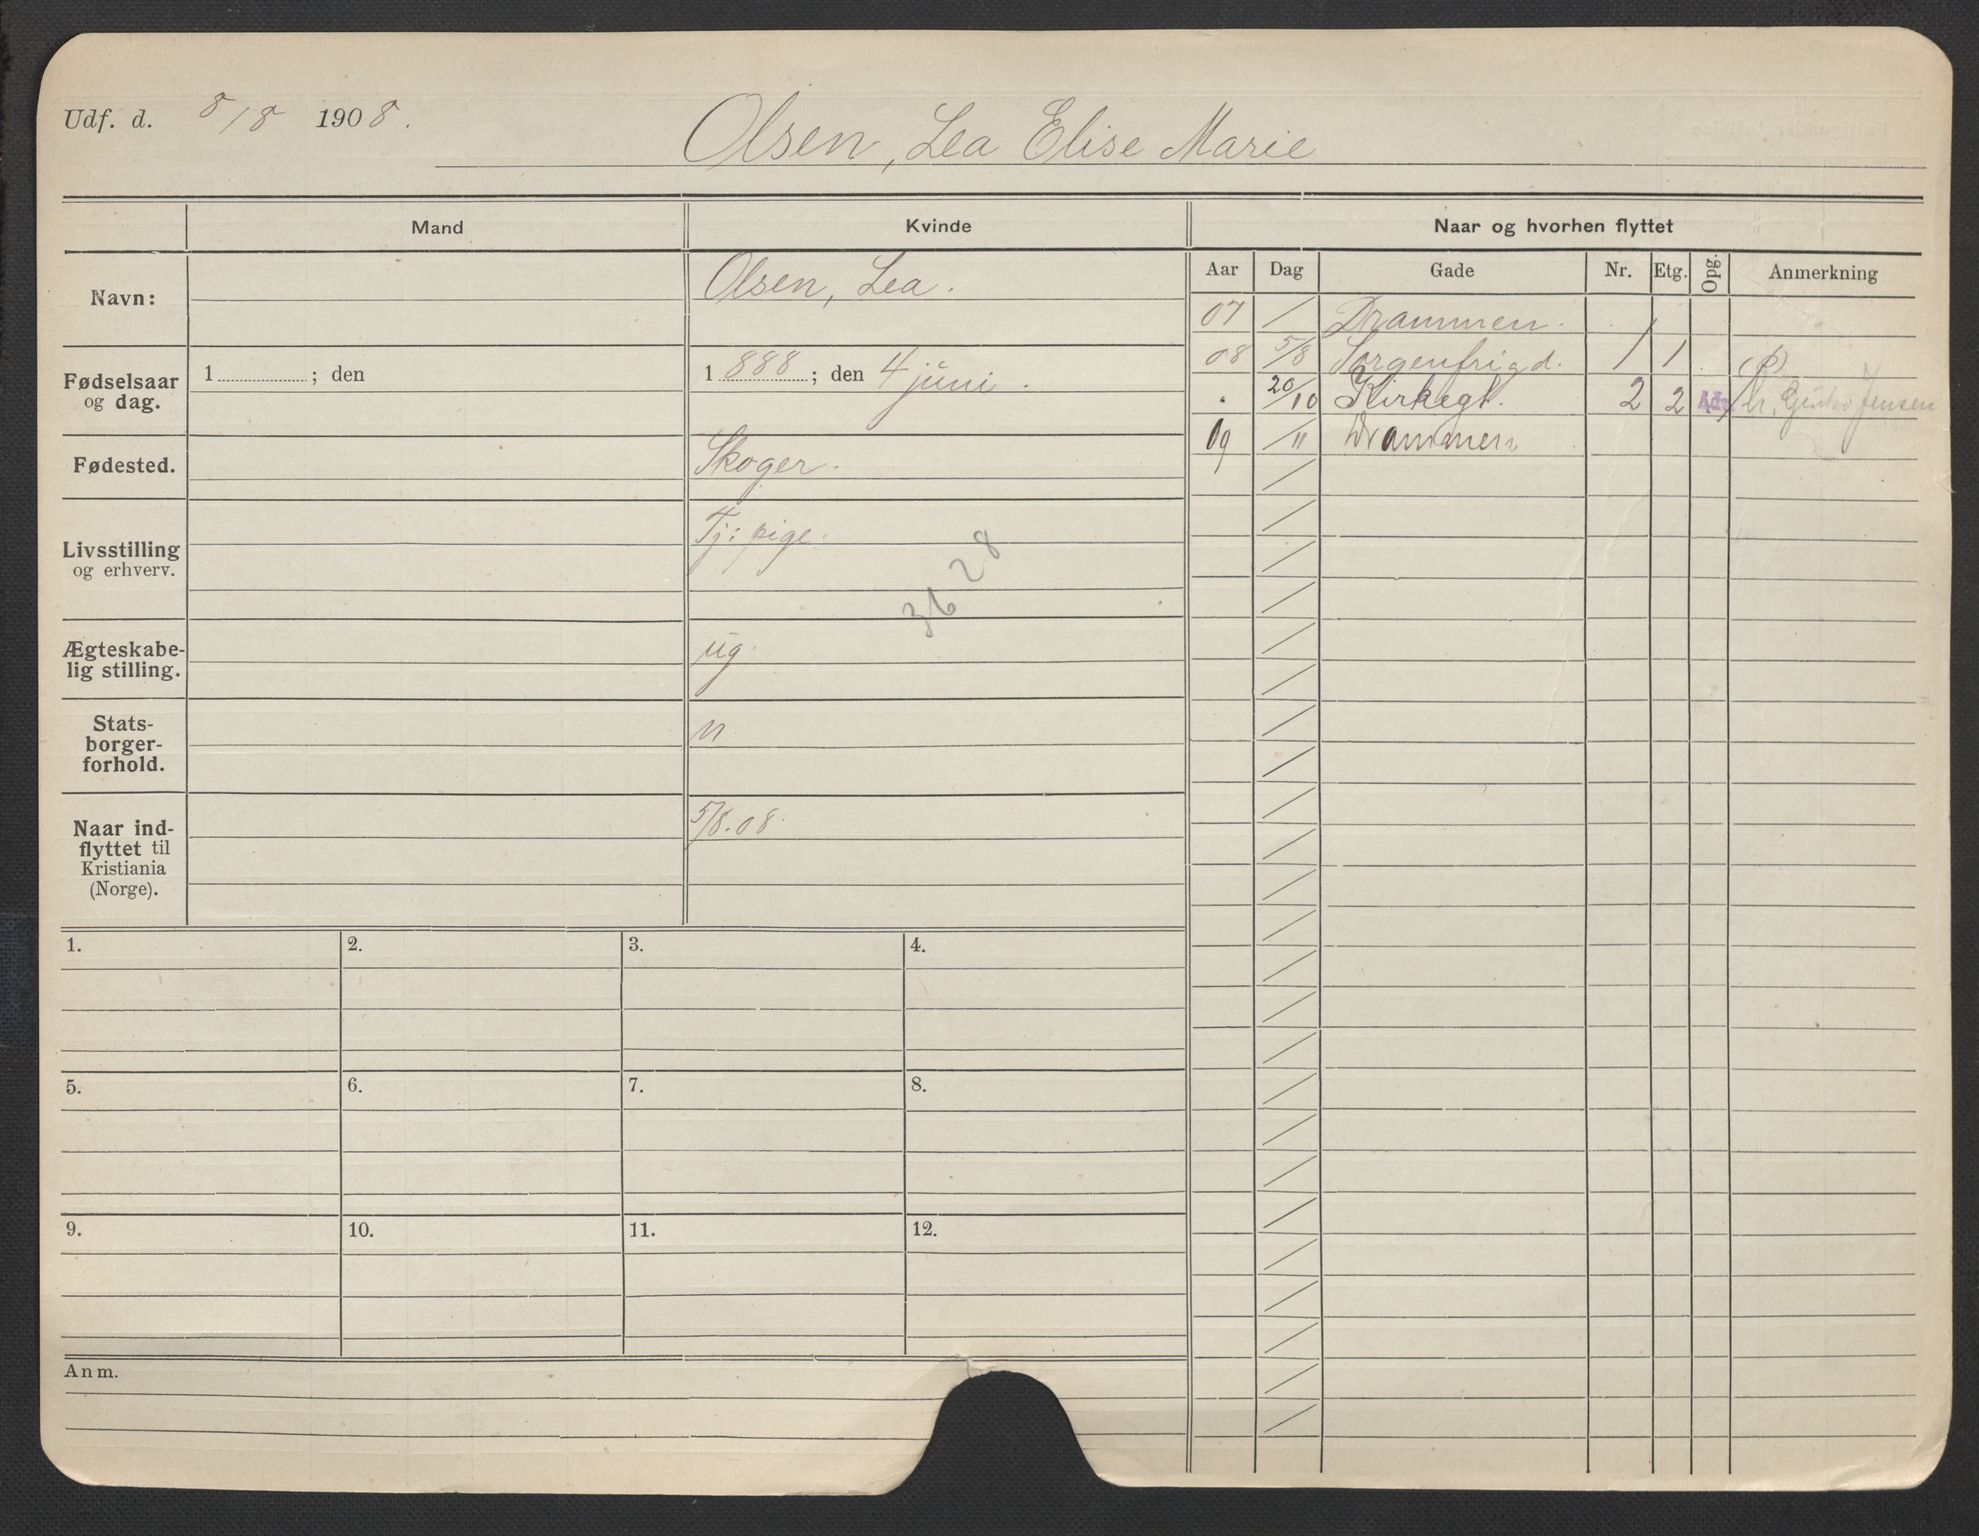 Udf. d. 8/8 1908.
Olsen, Lea Elise Marie
Mand
Kvinde
Naar og hvorhen flyttet
Navn:
Olsen, Lea.
Fødselsaar og dag.
1 ; den
1888 ; den 4 juni.
Fødested.
Skoger.
Livsstilling og erhverv.
Tj: pige.
3628
Ægteskabe-
lig stilling.
ug.
Stats-
borger-
forhold.
n
Naar ind-
flyttet til
Kristiania
(Norge).
5/8.08.
Aar Dag Gade Nr. Etg. Opg. Anmerkning
07 / Drammen.
08 5/8 Sorgenfrigd. 1 1 (P)
" 20/10 Kirkegt. 2 2 Gustav Jensen
09 /11 Drammen
1. 2. 3. 4.
5. 6. 7. 8.
9. 10. 11. 12.
Anm.